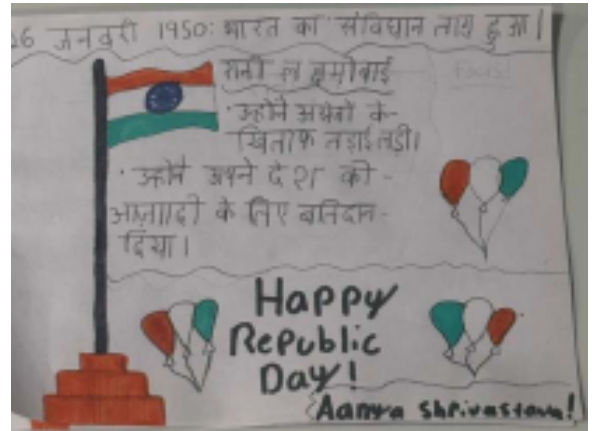 26 जनवरी 1950: भारत का संविधान लागू हुआ।
रानी लक्ष्मीबाई
• उन्होंने अंग्रेजों के-
खिलाफ लड़ाई लड़ी।
• उन्होंने अपने देश की-
आज़ादी के लिए बलिदान-
दिया।
Happy
Republic
Day!
Aanya Shrivastava!